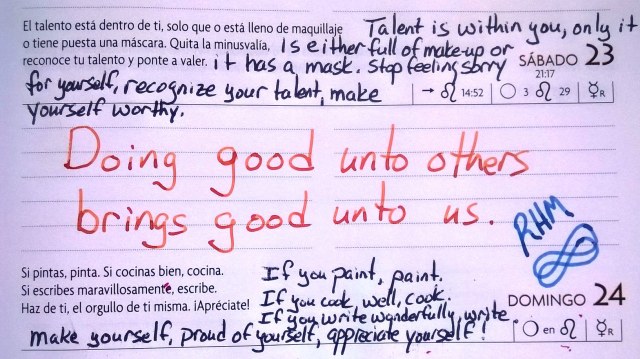 El talento está dentro de ti, solo que o está lleno de maquillaje
o tiene puesta una máscara. Quita la minusvalía,
reconoce tu talento y ponte a valer.
Talent is within you, only it
is either full of make-up or
it has a mask. Stop feeling sorry
for yourself, recognize your talent, make
yourself worthy.
SÁBADO 23
21:17
→ ♌ 14:52 | ○ 3 ♌ 29 | ☿R
Doing good unto others
brings good unto us.
RHM
Si pintas, pinta. Si cocinas bien, cocina.
Si escribes maravillosamente, escribe.
Haz de ti, el orgullo de ti misma. ¡Apréciate!
If you paint, paint.
If you cook, well, cook.
If you write wonderfully, write
make yourself, proud of yourself, appreciate yourself!
DOMINGO 24
○ en ♌ | ☿R